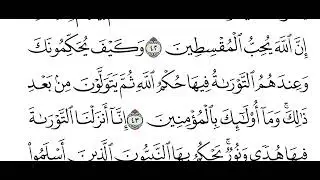 إِنَّ ٱللَّهَ يُحِبُّ ٱلْمُقْسِطِينَ ٤٢ وَكَيْفَ يُحَكِّمُونَكَ
وَعِندَهُمُ ٱلتَّوْرَىٰةُ فِيهَا حُكْمُ ٱللَّهِ ثُمَّ يَتَوَلَّوْنَ مِنۢ بَعْدِ
ذَٰلِكَۚ وَمَآ أُو۟لَٰٓئِكَ بِٱلْمُؤْمِنِينَ ٤٣ إِنَّآ أَنزَلْنَا ٱلتَّوْرَىٰةَ
فِيهَا هُدًى وَنُورٌۚ يَحْكُمُ بِهَا ٱلنَّبِيُّونَ ٱلَّذِينَ أَسْلَمُوا۟